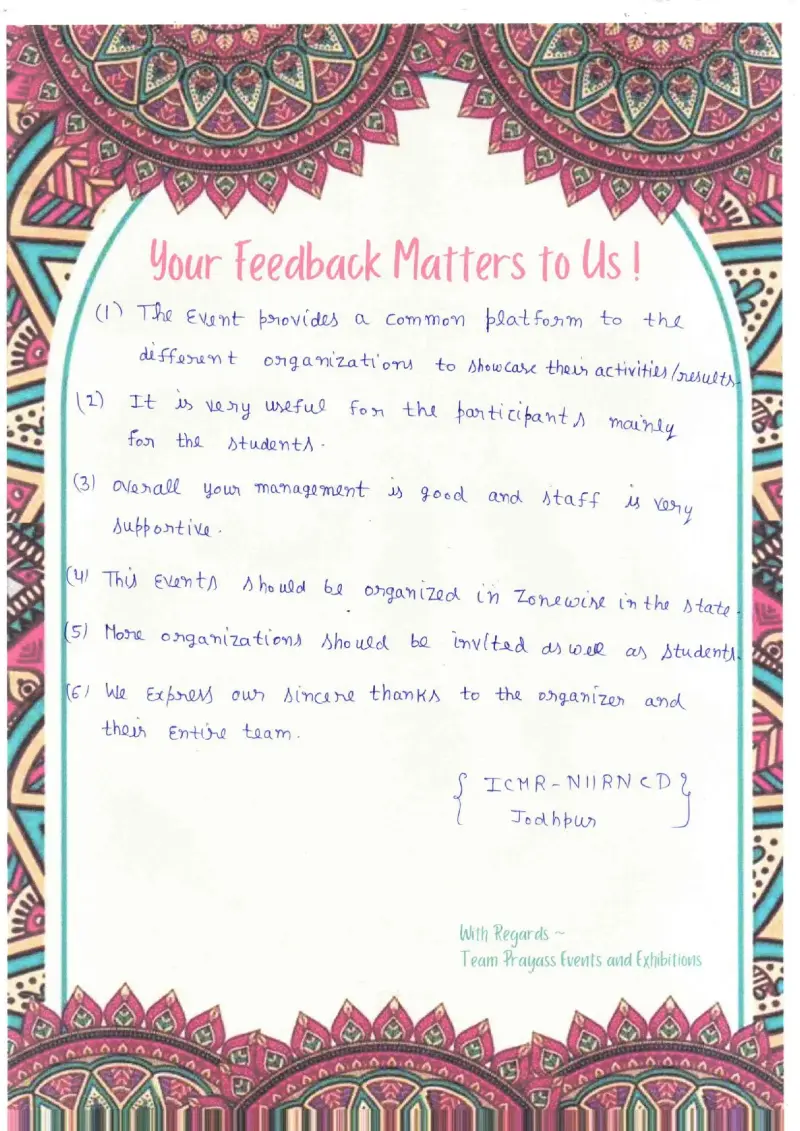 Your Feedback Matters to Us !
(1) The Event provides a common platform to the
different organizations to showcase their activities/results.
(2) It is very useful for the participants mainly
for the students.
(3) Overall your management is good and staff is very
supportive.
(4) This Events should be organized in Zonewise in the state.
(5) More organizations should be invited as well as students.
(6) We Express our sincere thanks to the organizer and
their Entire team.
{ ICMR-NIIRNCD }
Jodhpur
With Regards ~
Team Prayass Events and Exhibitions